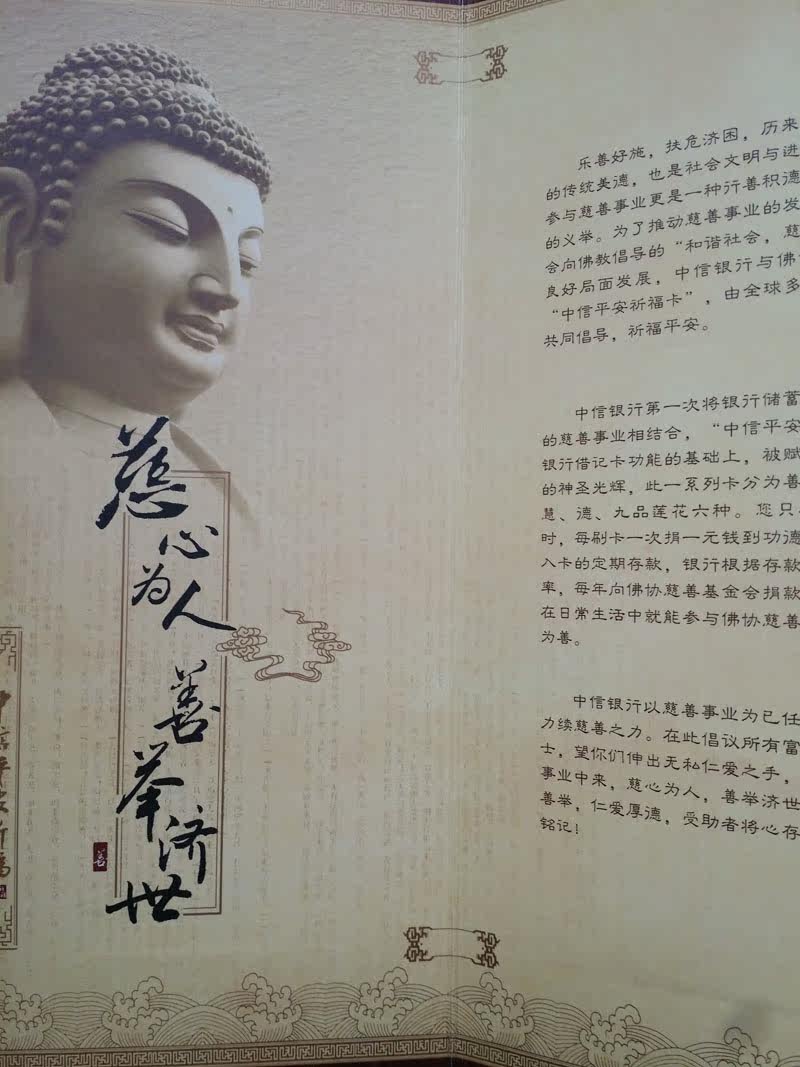 慈心为人
善举济世
善
中信平安祈福
乐善好施，扶危济困，历来
的传统美德，也是社会文明与进
参与慈善事业更是一种行善积德
的义举。为了推动慈善事业的发
会向佛教倡导的“和谐社会，慈
良好局面发展，中信银行与佛
“中信平安祈福卡”，由全球多
共同倡导，祈福平安。
中信银行第一次将银行储蓄
的慈善事业相结合，“中信平安
银行借记卡功能的基础上，被赋
的神圣光辉，此一系列卡分为善
慧、德、九品莲花六种。您只
时，每刷卡一次捐一元钱到功德
入卡的定期存款，银行根据存款
率，每年向佛协慈善基金会捐款
在日常生活中就能参与佛协慈善
为善。
中信银行以慈善事业为已任
力续慈善之力。在此倡议所有富
士，望你们伸出无私仁爱之手，
事业中来，慈心为人，善举济世
善举，仁爱厚德，受助者将心存
铭记！